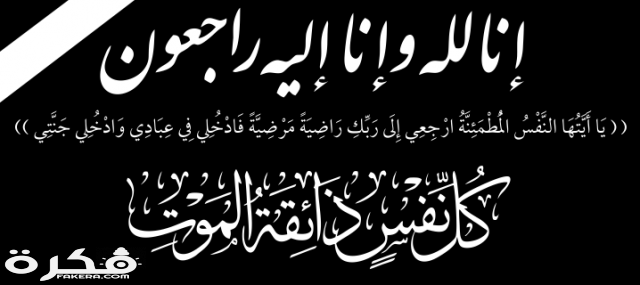 إنا لله وإنا إليه راجعون
(( يَا أَيَّتُهَا النَّفْسُ الْمُطْمَئِنَّةُ ارْجِعِي إِلَى رَبِّكِ رَاضِيَةً مَرْضِيَّةً فَادْخُلِي فِي عِبَادِي وَادْخُلِي جَنَّتِي ))
كُلُّ نَفْسٍ ذَائِقَةُ الْمَوْتِ
فكرة
FAKERA.COM